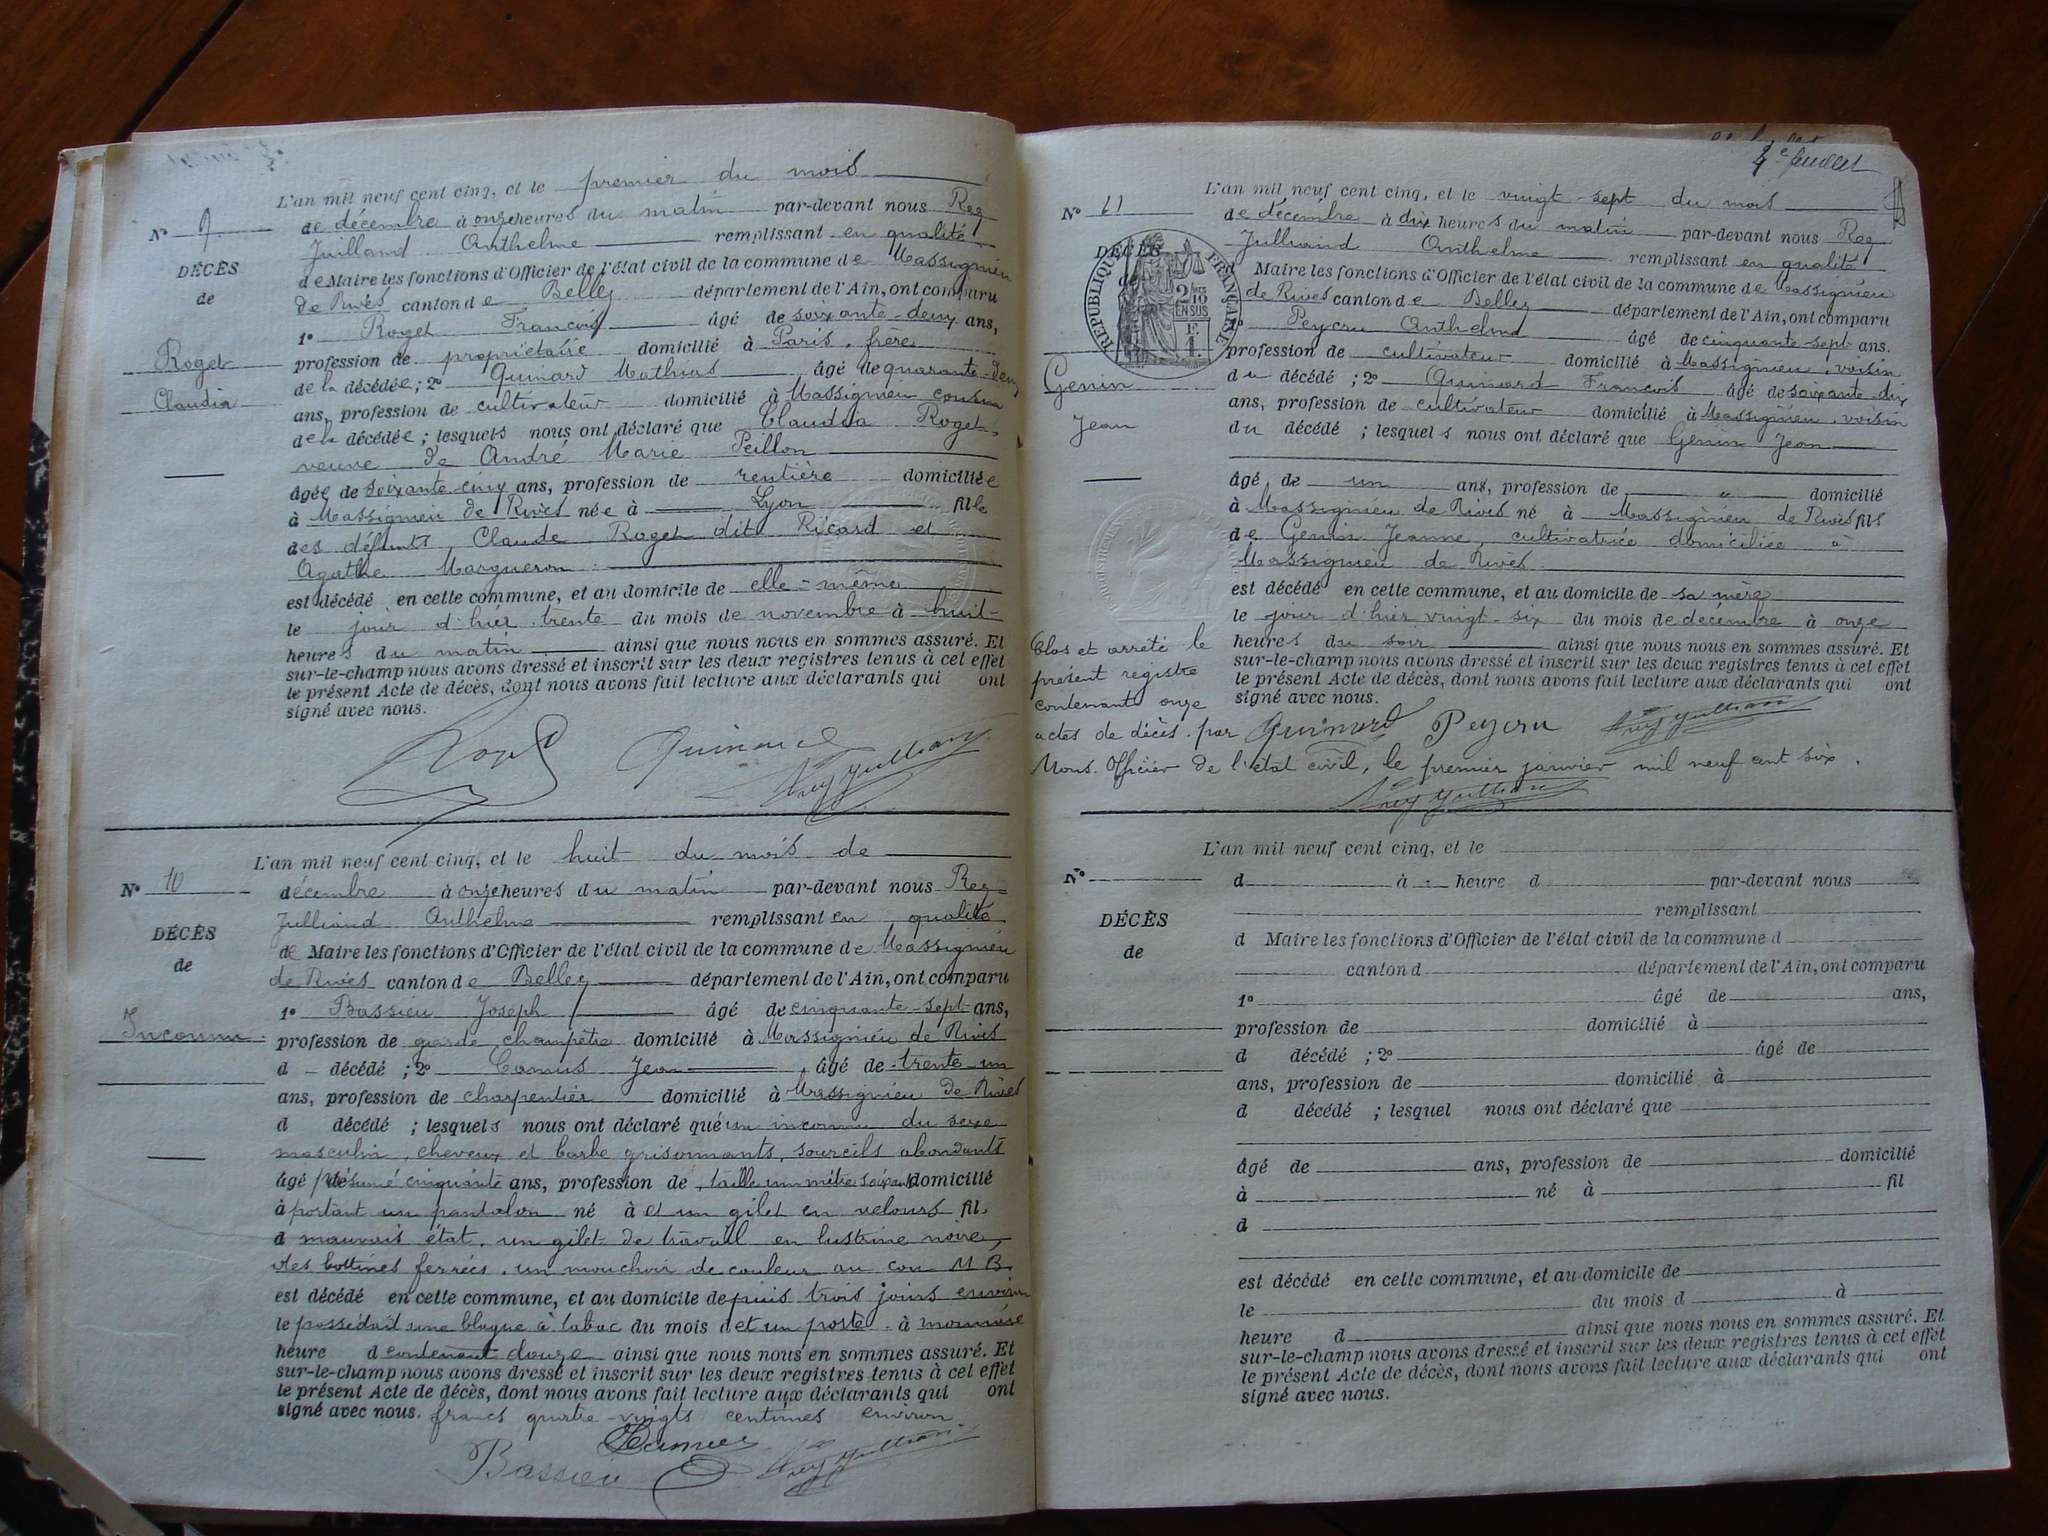 L'an mil neuf cent cinq, et le premier du mois
N° 9
de décembre à onze heures du matin par-devant nous Rey
Juilland Anthelme remplissant en qualité
DÉCÈS
de Maire les fonctions d'Officier de l'état civil de la commune de Massignieu
de
de Rives canton de Belley département de l'Ain, ont comparu
1° Roget François âgé de soixante-deux ans,
Roget
profession de propriétaire domicilié à Paris, frère
Claudia
de la décédée ; 2° Guinard Mathias âgé de quarante-deux
ans, profession de cultivateur domicilié à Massignieu cousin
de la décédée ; lesquels nous ont déclaré que Claudia Roget
veuve de André Marie Peillon
âgée de soixante cinq ans, profession de rentière domiciliée
à Massignieu de Rives née à Lyon fille
des défunts Claude Roget dit Ricard et
Agathe Margueron
est décédé en cette commune, et au domicile de elle-même
le jour d'hier trente du mois de novembre à huit
heures du matin ainsi que nous nous en sommes assuré. Et
sur-le-champ nous avons dressé et inscrit sur les deux registres tenus à cet effet
le présent Acte de décès, dont nous avons fait lecture aux déclarants qui ont
signé avec nous.
Roget Guinard Rey Juilliand
L'an mil neuf cent cinq, et le huit du mois de
N° 10
décembre à onze heures du matin par-devant nous Rey
Julliand Anthelme remplissant en qualité
DÉCÈS
de Maire les fonctions d'Officier de l'état civil de la commune de Massignieu
de
de Rives canton de Belley département de l'Ain, ont comparu
1° Bassieu Joseph âgé de cinquante-sept ans,
Inconnu
profession de garde champêtre domicilié à Massignieu de Rives
d décédé ; 2° Camus Jean âgé de trente-un
ans, profession de charpentier domicilié à Massignieu de Rives
d décédé ; lesquels nous ont déclaré qué un inconnu du sexe
masculin, cheveux et barbe grisonnants, sourcils abondants
âgé présumé cinquante ans, profession de taille un mètre soixante domicilié
à portant un pantalon né à et un gilet en velours fil
d mauvais état, un gilet de travail en lustrine noire,
des bottines ferrées, un mouchoir de couleur au cou M B
est décédé en cette commune, et au domicile depuis trois jours environ
le possédait une blague à tabac du mois d et un porte à monnaie
heure d contenant douze ainsi que nous nous en sommes assuré. Et
sur-le-champ nous avons dressé et inscrit sur les deux registres tenus à cet effet
le présent Acte de décès, dont nous avons fait lecture aux déclarants qui ont
signé avec nous. francs quatre-vingts centimes environ.
Bassieu Camus Rey Julliand
4e feuillet
L'an mil neuf cent cinq, et le vingt-sept du mois
N° 11
de décembre à dix heures du matin par-devant nous Rey
Julliand Anthelme remplissant en qualité
DÉCÈS
de
RÉPUBLIQUE FRANÇAISE
2 10
EN SUS
F.
1.
d Maire les fonctions d'Officier de l'état civil de la commune de Massignieu
de Rives canton de Belley département de l'Ain, ont comparu
1° Peycru Anthelme âgé de cinquante-sept ans.
profession de cultivateur domicilié à Massignieu, voisin
Genin
du décédé ; 2° Guinard François âgé de soixante-dix
ans, profession de cultivateur domicilié à Massignieu, voisin
Jean
du décédé ; lesquels nous ont déclaré que Genin Jean
âgé de un ans, profession de " domicilié
à Massignieu de Rives né à Massignieu de Rives fils
de Genin Jeanne, cultivatrice domiciliée à
Massignieu de Rives
est décédé en cette commune, et au domicile de sa mère
le jour d'hier vingt-six du mois de décembre à onze
heures du soir ainsi que nous nous en sommes assuré. Et
sur-le-champ nous avons dressé et inscrit sur les deux registres tenus à cet effet
le présent Acte de décès, dont nous avons fait lecture aux déclarants qui ont
signé avec nous.
Guinard Peycru Rey Julliand
Clos et arrêté le
présent registre
contenant onze
actes de décès par
Nous Officier de l'état civil, le premier janvier mil neuf cent six.
Rey Julliand
L'an mil neuf cent cinq, et le
N°
d à heure d par-devant nous
remplissant
DÉCÈS
d Maire les fonctions d'Officier de l'état civil de la commune d
de
canton d département de l'Ain, ont comparu
1° âgé de ans,
profession de domicilié à
d décédé ; 2° âgé de
ans, profession de domicilié à
d décédé ; lesquel nous ont déclaré que
âgé de ans, profession de domicilié
à né à fil
d
est décédé en cette commune, et au domicile de
le du mois d à
heure d ainsi que nous nous en sommes assuré. Et
sur-le-champ nous avons dressé et inscrit sur les deux registres tenus à cet effet
le présent Acte de décès, dont nous avons fait lecture aux déclarants qui ont
signé avec nous.